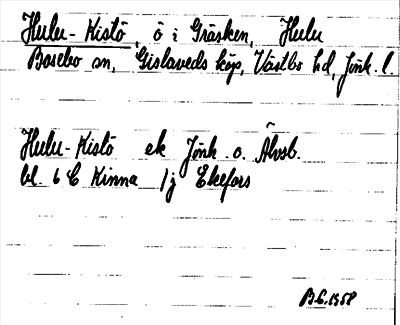 Hulu-Kistö, ö i Gråsken, Hulu
Bosebo sn, Gislaveds köp, Västbo hd, Jönk. l.
Hulu-Kistö ek Jönk. o. Älvsb.
bl. 6 C Kinna 1j Ekefors
B.G. 1958